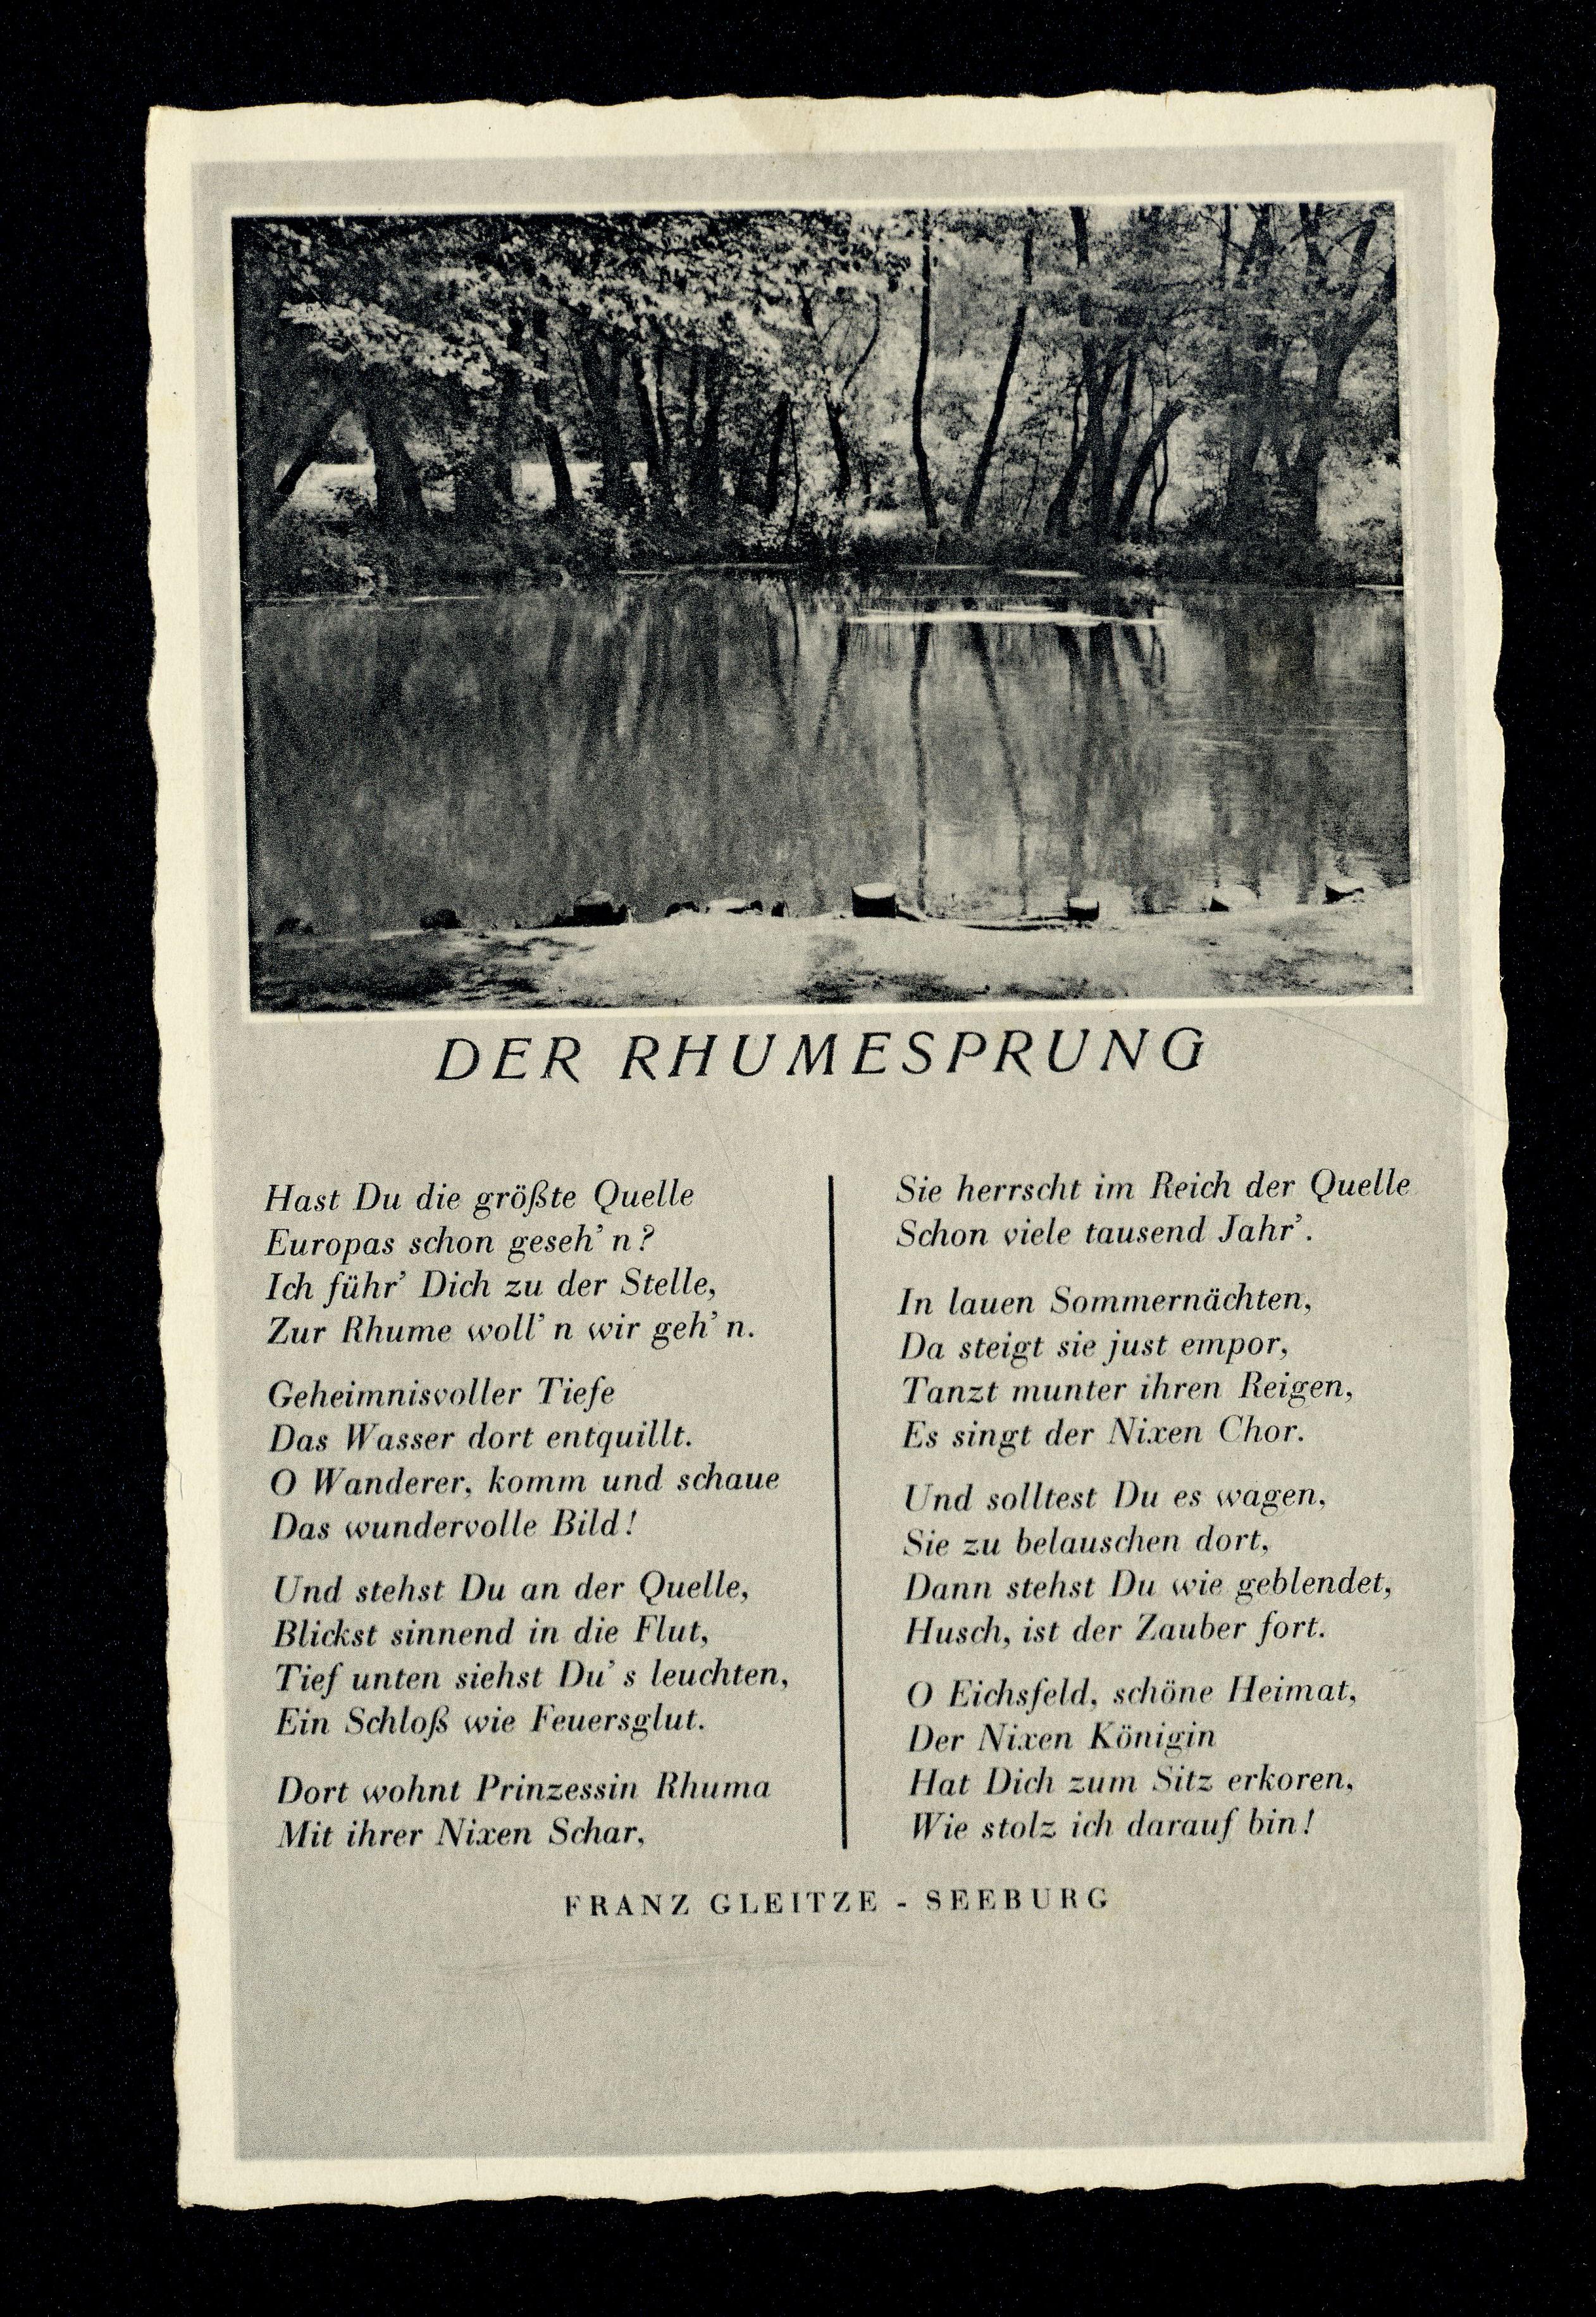 DER RHUMESPRUNG
Hast Du die größte Quelle
Europas schon geseh' n?
Ich führ' Dich zu der Stelle,
Zur Rhume woll' n wir geh' n.
Geheimnisvoller Tiefe
Das Wasser dort entquillt.
O Wanderer, komm und schaue
Das wundervolle Bild!
Und stehst Du an der Quelle,
Blickst sinnend in die Flut,
Tief unten siehst Du' s leuchten,
Ein Schloß wie Feuersglut.
Dort wohnt Prinzessin Rhuma
Mit ihrer Nixen Schar,
Sie herrscht im Reich der Quelle
Schon viele tausend Jahr'.
In lauen Sommernächten,
Da steigt sie just empor,
Tanzt munter ihren Reigen,
Es singt der Nixen Chor.
Und solltest Du es wagen,
Sie zu belauschen dort,
Dann stehst Du wie geblendet,
Husch, ist der Zauber fort.
O Eichsfeld, schöne Heimat,
Der Nixen Königin
Hat Dich zum Sitz erkoren,
Wie stolz ich darauf bin!
FRANZ GLEITZE - SEEBURG